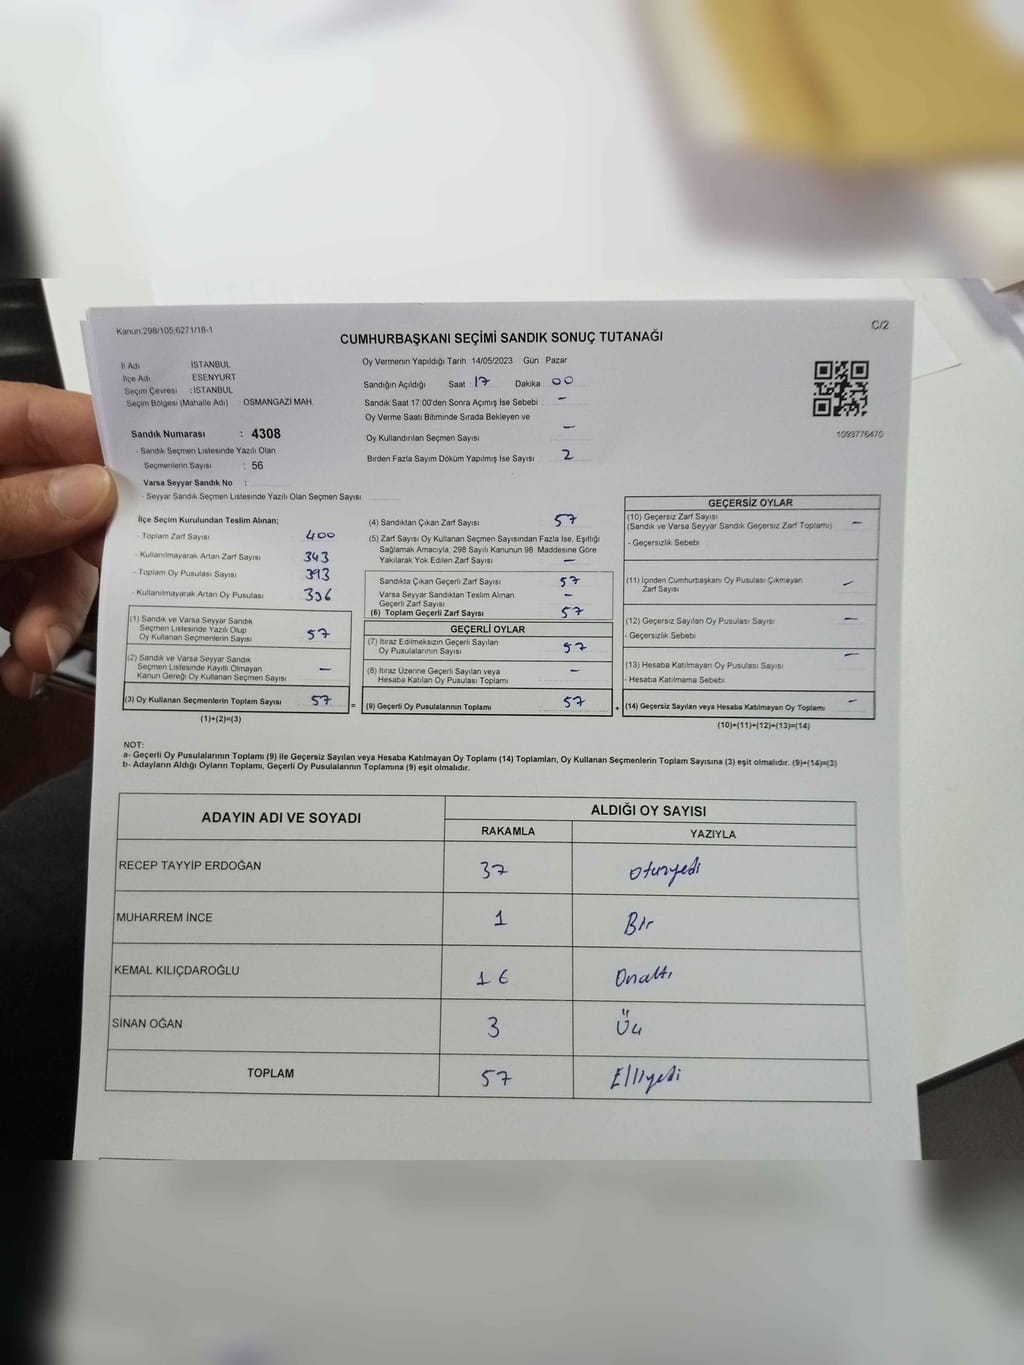 Kanun:298/105,6271/18-1
C/2
CUMHURBAŞKANI SEÇİMİ SANDIK SONUÇ TUTANAĞI
İl Adı : İSTANBUL
İlçe Adı : ESENYURT
Seçim Çevresi : İSTANBUL
Seçim Bölgesi (Mahalle Adı) OSMANGAZİ MAH.
Sandık Numarası : 4308
- Sandık Seçmen Listesinde Yazılı Olan
Seçmenlerin Sayısı : 56
Varsa Seyyar Sandık No :
- Seyyar Sandık Seçmen Listesinde Yazılı Olan Seçmen Sayısı
Oy Vermenin Yapıldığı Tarih 14/05/2023 Gün Pazar
Sandığın Açıldığı Saat 17 Dakika 00
Sandık Saat 17:00'den Sonra Açımış İse Sebebi : -
Oy Verme Saati Bitiminde Sırada Bekleyen ve
Oy Kullandırılan Seçmen Sayısı -
Birden Fazla Sayım Döküm Yapılmış İse Sayısı 2
1093776470
İlçe Seçim Kurulundan Teslim Alınan;
- Toplam Zarf Sayısı 400
- Kullanılmayarak Artan Zarf Sayısı 343
- Toplam Oy Pusulası Sayısı 393
- Kullanılmayarak Artan Oy Pusulası 336
(1) Sandık ve Varsa Seyyar Sandık
Seçmen Listesinde Yazılı Olup
Oy Kullanan Seçmenlerin Sayısı 57
(2) Sandık ve Varsa Seyyar Sandık
Seçmen Listesinde Kayıtlı Olmayan
Kanun Gereği Oy Kullanan Seçmen Sayısı -
(3) Oy Kullanan Seçmenlerin Toplam Sayısı 57 =
(1)+(2)=(3)
(4) Sandıktan Çıkan Zarf Sayısı 57
(5) Zarf Sayısı Oy Kullanan Seçmen Sayısından Fazla İse, Eşitliği
Sağlamak Amacıyla, 298 Sayılı Kanunun 98. Maddesine Göre
Yakılarak Yok Edilen Zarf Sayısı -
Sandıkta Çıkan Geçerli Zarf Sayısı 57
Varsa Seyyar Sandıktan Teslim Alınan
Geçerli Zarf Sayısı -
(6) Toplam Geçerli Zarf Sayısı 57
GEÇERLİ OYLAR
(7) İtiraz Edilmeksizin Geçerli Sayılan
Oy Pusulalarının Sayısı 57
(8) İtiraz Üzerine Geçerli Sayılan veya
Hesaba Katılan Oy Pusulası Toplamı -
(9) Geçerli Oy Pusulalarının Toplamı 57 +
GEÇERSİZ OYLAR
(10) Geçersiz Zarf Sayısı
(Sandık ve Varsa Seyyar Sandık Geçersiz Zarf Toplamı) -
- Geçersizlik Sebebi
(11) İçinden Cumhurbaşkanı Oy Pusulası Çıkmayan
Zarf Sayısı -
(12) Geçersiz Sayılan Oy Pusulası Sayısı -
- Geçersizlik Sebebi
(13) Hesaba Katılmayan Oy Pusulası Sayısı -
- Hesaba Katılmama Sebebi
(14) Geçersiz Sayılan veya Hesaba Katılmayan Oy Toplamı -
(10)+(11)+(12)+(13)=(14)
NOT:
a- Geçerli Oy Pusulalarının Toplamı (9) ile Geçersiz Sayılan veya Hesaba Katılmayan Oy Toplamı (14) Toplamları, Oy Kullanan Seçmenlerin Toplam Sayısına (3) eşit olmalıdır. (9)+(14)=(3)
b- Adayların Aldığı Oyların Toplamı, Geçerli Oy Pusulalarının Toplamına (9) eşit olmalıdır.
ADAYIN ADI VE SOYADI
ALDIĞI OY SAYISI
RAKAMLA YAZIYLA
RECEP TAYYİP ERDOĞAN 37 otuzyedi
MUHARREM İNCE 1 Bir
KEMAL KILIÇDAROĞLU 16 Onaltı
SİNAN OĞAN 3 Üç
TOPLAM 57 Elliyedi